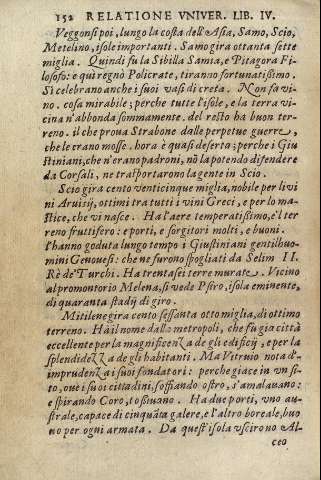 152 RELATIONE VNIVER. LIB. IV.
Veggonsi poi, lungo la costa dell'Asia, Samo, Scio,
Metelino, isole importanti. Samo gira ottanta sette
miglia. Quindi fu la Sibilla Samia, e Pitagora Fi-
losofo: e qui regnò Policrate, tiranno fortunatissimo.
Si celebrano anche i suoi vasi di creta. Non fa vi-
no. cosa mirabile; perche tutte l'isole, e la terra vi-
cina n'abbonda sommamente. del resto ha buon ter-
reno. il che proua Strabone dalle perpetue guerre,
che le erano mosse. hora è quasi deserta; perche i Giu
stiniani, che n'erano padroni, nō la potendo difendere
da Corsali, ne trasportarono la gente in Scio.
Scio gira cento venticinque miglia, nobile per li vi
ni Aruisij, ottimi tra tutti i vini Greci, e per lo ma-
stice, che vi nasce. Ha l'aere temperatissimo, e'l ter
reno fruttifero: e porti, e sorgitori molti, e buoni.
l'hanno goduta lungo tempo i Giustiniani gentilhuo-
mini Genouesi: che ne furono spogliati da Selim II.
Rè de'Turchi. Ha trentasei terre murate. Vicino
al promontorio Melena, si vede Psiro, isola eminente,
di quaranta stadij di giro.
Mitilene gira cento sessanta otto miglia, di ottimo
terreno. Ha il nome dalla metropoli, che fu gia città
eccellente per la magnificenza de gli edificij, e per la
splendidezza de gli habitanti. Ma Vitruio nota d'-
imprudenza i suoi fondatori: perche giace in vn si-
to, oue i suoi cittadini, soffiando ostro, s'amalauano:
e spirando Coro, tossiuano. Ha due porti, vno au-
strale, capace di cinquāta galere, e l'altro boreale, buo
no per ogni armata. Da quest'isola vscirono Al-
ceo